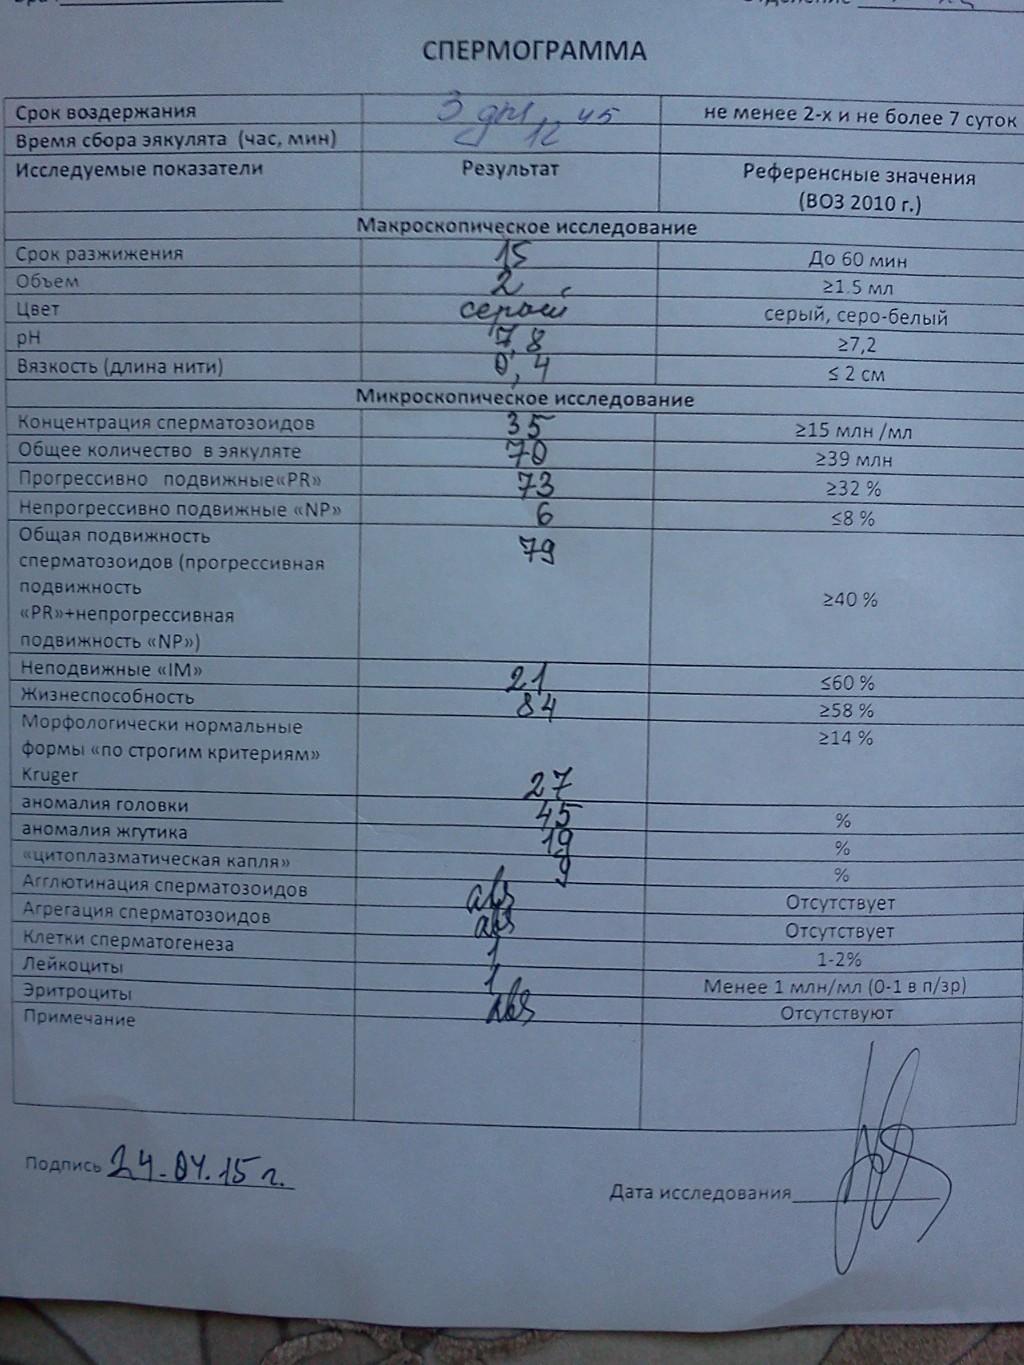 СПЕРМОГРАММА
Срок воздержания 3 дня не менее 2-х и не более 7 суток
Время сбора эякулята (час, мин) 12 45
Исследуемые показатели Результат Референсные значения
(ВОЗ 2010 г.)
Макроскопическое исследование
Срок разжижения 15 До 60 мин
Объем 2 ≥1.5 мл
Цвет серый серый, серо-белый
pH 7,8 ≥7,2
Вязкость (длина нити) 0,4 ≤ 2 см
Микроскопическое исследование
Концентрация сперматозоидов 35 ≥15 млн /мл
Общее количество в эякуляте 70 ≥39 млн
Прогрессивно подвижные«PR» 73 ≥32 %
Непрогрессивно подвижные «NP» 6 ≤8 %
Общая подвижность 79
сперматозоидов (прогрессивная
подвижность
«PR»+непрогрессивная ≥40 %
подвижность «NP»)
Неподвижные «IM» 21 ≤60 %
Жизнеспособность 84 ≥58 %
Морфологически нормальные ≥14 %
формы «по строгим критериям»
Kruger 27
аномалия головки 45 %
аномалия жгутика 19 %
«цитоплазматическая капля» 9 %
Агглютинация сперматозоидов abs Отсутствует
Агрегация сперматозоидов abs Отсутствует
Клетки сперматогенеза 1 1-2%
Лейкоциты 1 Менее 1 млн/мл (0-1 в п/зр)
Эритроциты abs Отсутствуют
Примечание
Подпись 24.04.15 г.
Дата исследования